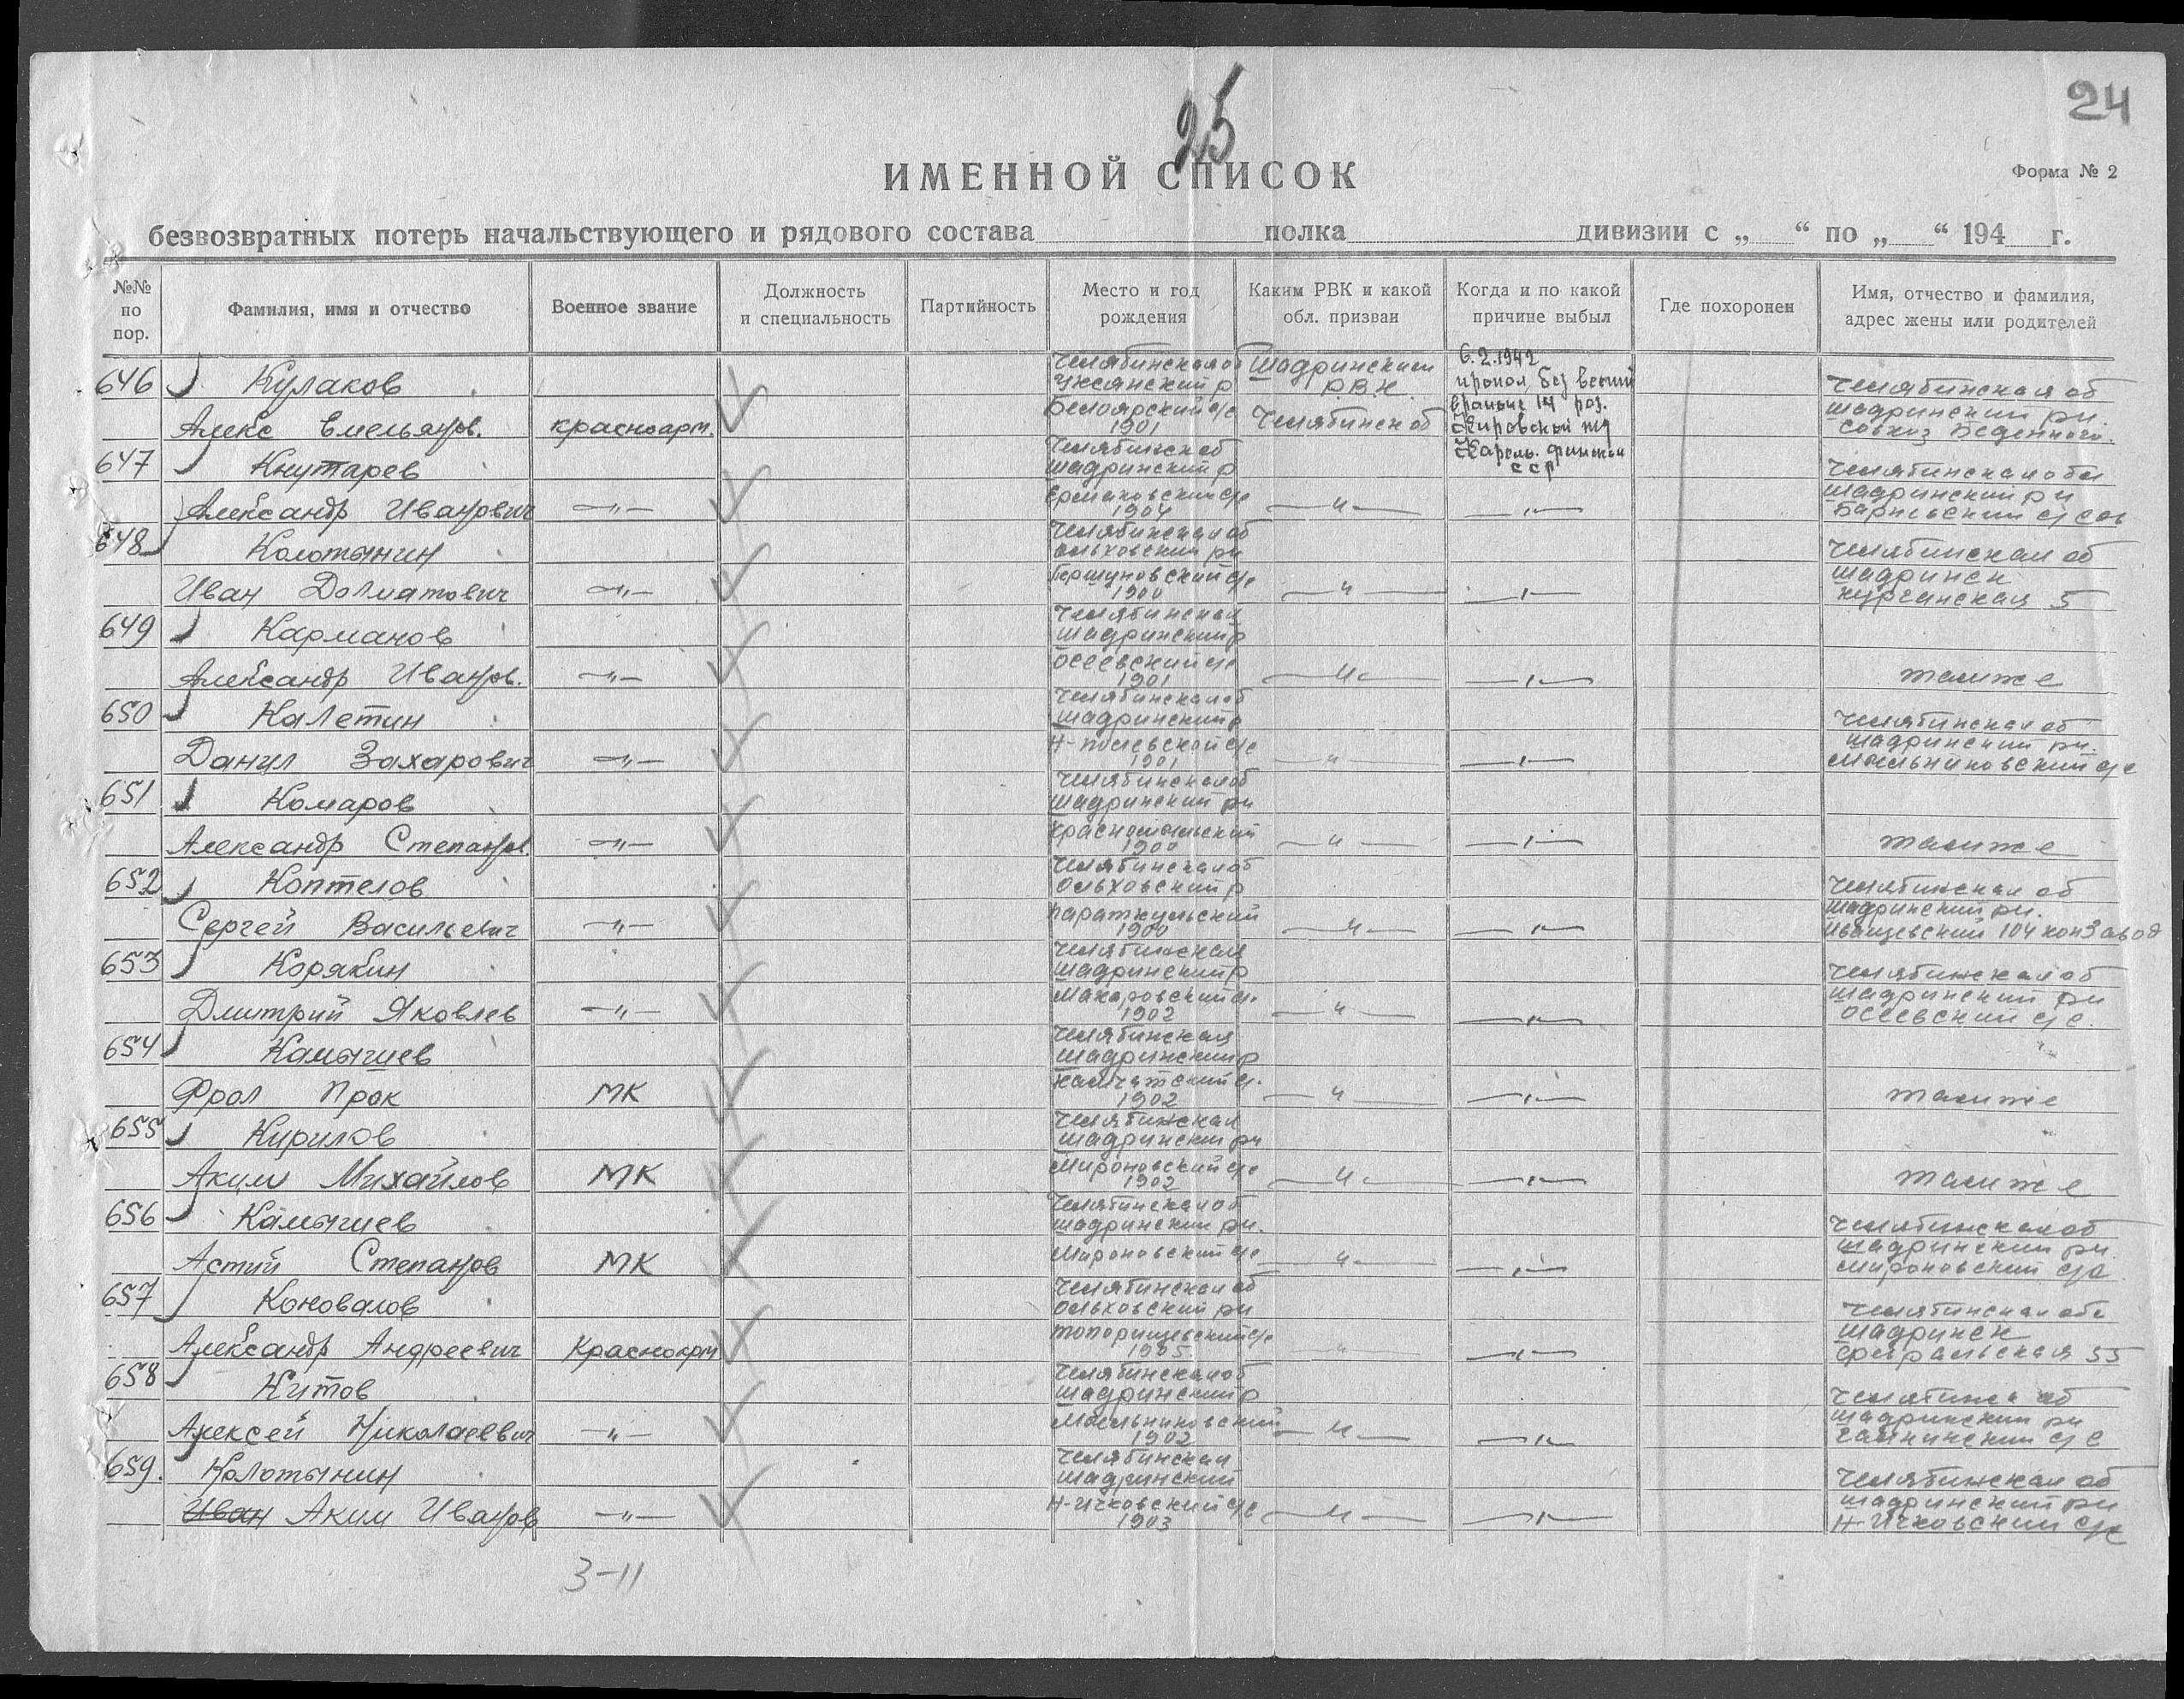 25
24
ИМЕННОЙ СПИСОК
Форма № 2
безвозвратных потерь начальствующего и рядового состава полка дивизии с „ “ по „ “ 194 г.
№№ по пор.
Фамилия, имя и отчество
Военное звание
Должность и специальность
Партийность
Место и год рождения
Каким РВК и какой обл. призван
Когда и по какой причине выбыл
Где похоронен
Имя, отчество и фамилия, адрес жены или родителей
646 Кулаков Челябинская об Шадринским 6.2.1942
Уксянский р Р.В.К. пропал без вести Челябинская об
Белоярский с/с 14 раз. Шадринский рн.
Алекс Емельянов. красноарм. 1901 Челябинск об Кировской жд совхоз Буденного.
647 Кнутарев Челябинск об Карело. финской
Шадринский р ССР Челябинская обл
Шадринский рн
Александр Иванович —„— 1904 —„— —„—
648 Колотынин Челябинская об
Ольховский рн Челябинская об
Шадринск
Иван Долматович —„— 1900 —„— —„— Курганская 5
649 Карманов Челябинская
Шадринский р
Осеевский с/с
Александр Иванов. —„— 1901 —„— —„— там же
650 Калетин Челябинская об
Шадринский р Челябинская об
Шадринский рн.
Данил Захарович —„— 1901 —„— —„— Мыльниковский с/с
651 Комаров Челябинская об
Шадринский рн
Александр Степанов. —„— 1900 —„— —„— там же
652 Коптелов Челябинская об
Ольховский р Челябинская об
Шадринский рн.
Сергей Васильевич —„— 1900 —„— —„— 104 конзавод
653 Корякин Челябинская
Шадринский р Челябинская об
Макаровский с/с. Шадринский рн
Дмитрий Яковлев —„— 1902 —„— —„— Осеевский с/с.
654 Камышев Челябинская
Шадринский р
Камчатский с/с.
Фрол Прок МК 1902 —„— —„— там же
655 Кирилов Челябинская
Шадринский рн
Мироновский с/с
Аким Михайлов МК 1902 —„— —„— там же
656 Камышев Челябинская об
Шадринский рн. Челябинская об
Мироновский с/с Шадринский рн.
Астий Степанов МК —„— —„— Мироновский с/с
657 Коновалов Челябинская об
Ольховский рн Челябинская обл
Топорищевский с/с Шадринск
Александр Андреевич Красноарм 1905 —„— —„— Февральская 55
658 Китов Челябинская об
Шадринский р Челябинск об
Мыльниковский Шадринский рн
Алексей Николаевич —„— 1902 —„— —„—
659. Колотынин Челябинская
Шадринский Челябинская об
Н-Ичковский с/с Шадринский рн
Иван Аким Иванов —„— 1903 —„— —„— Н-Ичковский с/с
3-11